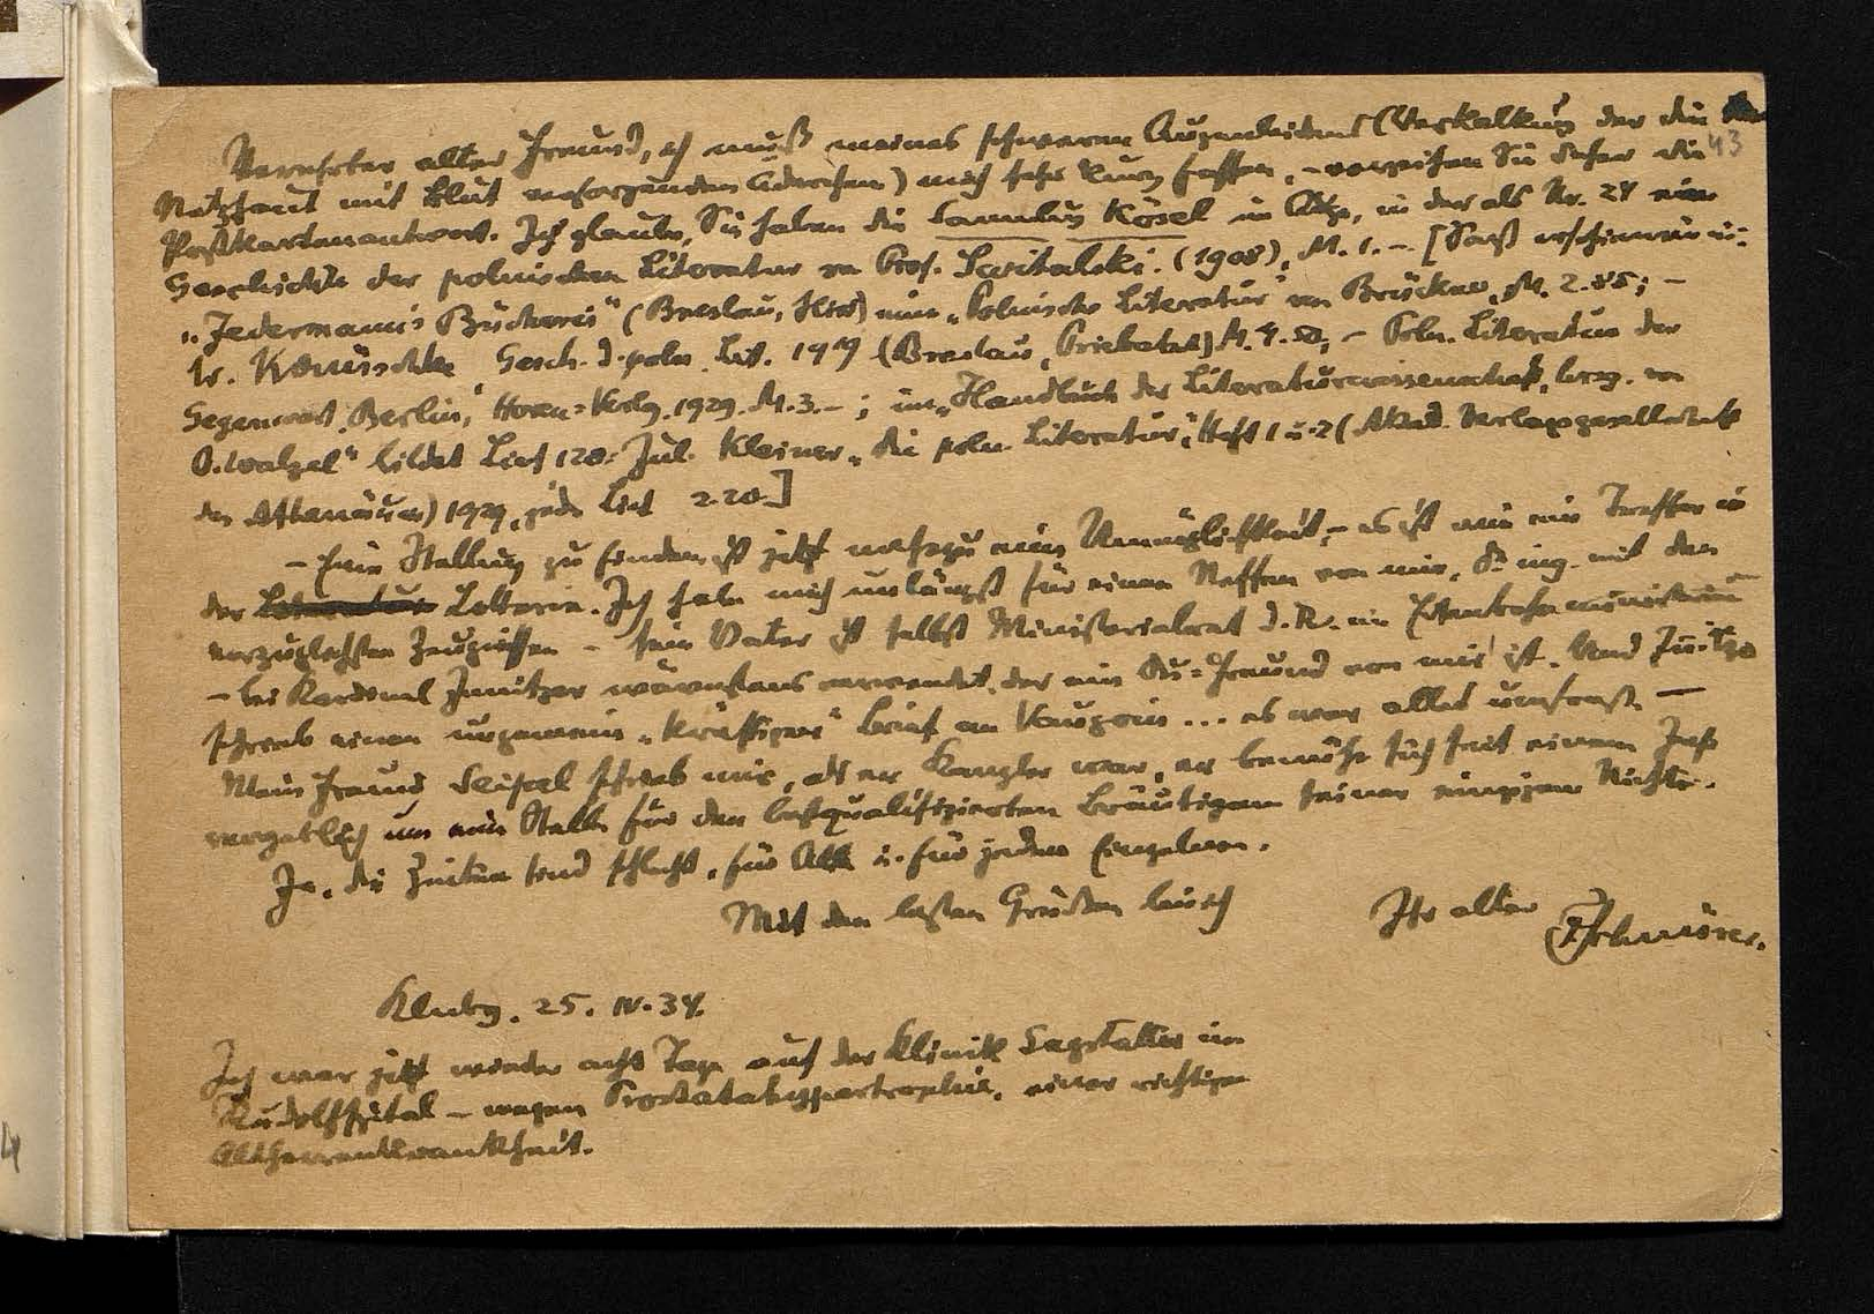 Verehrter alter Freund, ich muß meines schweren Augenleidens (Verkalkung der die
43
Netzhaut mit Blut versorgenden Äderchen) mich sehr kurz fassen, – verzeihen Sie daher die
Postkartenantwort. Ich glaube, Sie haben die Sammlung Kösel im Auge, in der als Nr. 24 eine
Geschichte der polnischen Literatur von Prof. (1908), M. 1.– [Sonst erschienen in:
„Jedermanns Bücherei" (Breslau, Hirt) eine „Polnische Literatur" von Brückner, M. 2.85; –
Gesch. d. poln. Lit. 1919 (Breslau, Priebatsch) M. 4.50; – Poln. Literatur der
Gegenwart, Berlin, Horen=Verlg. 1929. M. 3.–; im „Handbuch der Literaturwissenschaft, hrsg. von
O. Walzel" bildet Lief 128: Jul. Kleiner „die poln. Literatur", Heft 1 u. 2 (Akad. Verlagsgesellschaft
des Athenäum) 1929, jede Lief 2.20.]
– Eine Stellung zu finden ist jetzt nahezu eine Unmöglichkeit, – es ist wie ein Treffer in
der Lotterie. Ich habe mich unlängst für einen Neffen von mir, Dr. ing. mit den
vorzüglichsten Zeugnissen – sein Vater ist selbst Ministerialrat d. R. im Eisenbahnministerium
– bei Kardinal Innitzer wärmstens verwendet, der ein Du=Freund von mir ist. Und Innitzer
schrieb einen ungemein „kräftigen" Brief an Vaugoin ... es war alles umsonst. –
Mein Freund Seipel schrieb mir, als er Kanzler war, er bemühe sich seit einem Jahr
vergeblich um eine Stelle für den bestqualifizierten Bräutigam seiner einzigen Nichte.
Ja, die Zeiten sind schlecht, für Alle u. für jeden Einzelnen.
Mit den besten Grüßen bin ich
Ihr alter
FSchnürer.
Klnbg. 25. IV. 34.
Ich war jetzt wieder acht Tage auf der Klinik im
Rudolfspital – wegen Prostatahypertrophie, einer richtigen
Altherrenkrankheit.